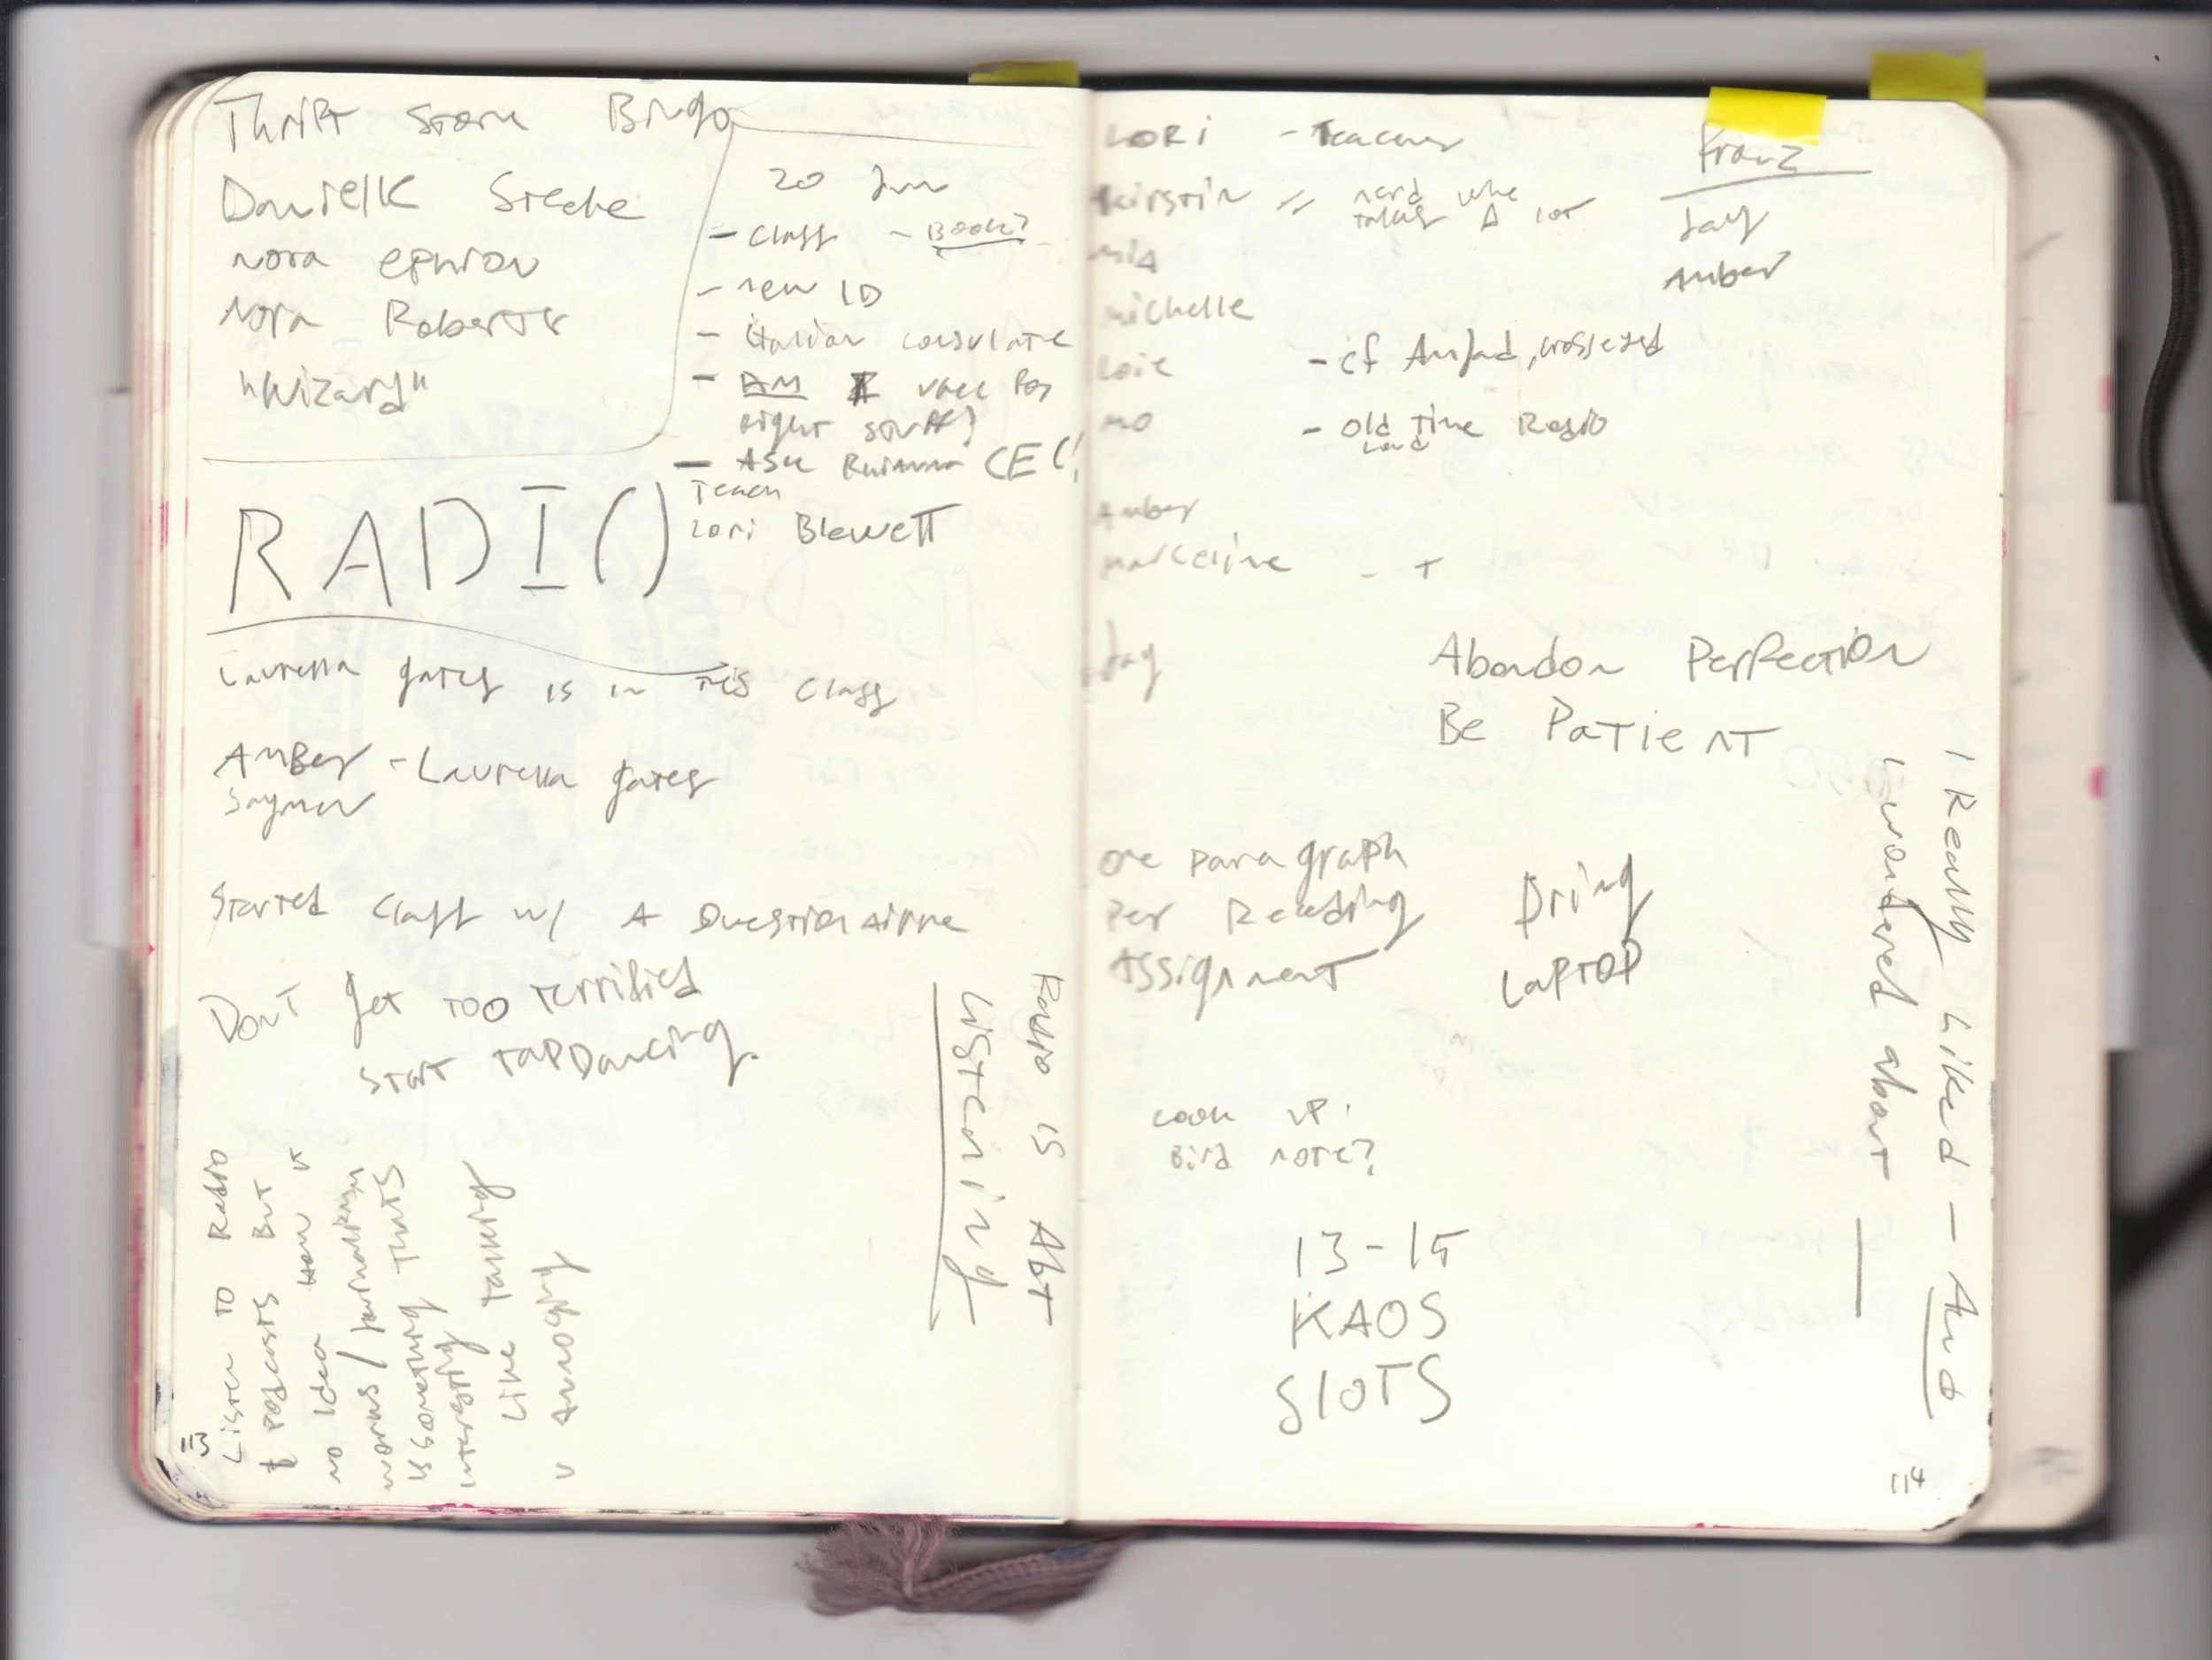 Thrift Store Bingo
Danielle Steele
Nora Ephron
Nora Roberts
"Wizard"
20 Jun
- Class - Book?
- new ID
- Italian consulate
- AM vacc for
right stuff?
- Ask Rhianna CEC!
Teach
Lori Blewett
RADIO
Laurella gates is in this class
Amber - Laurella gates
Started class w/ A Questionairre
Don't get too terrified
Start tapdancing.
Listen to Radio
& podcasts But
no idea how it
works / journalism
is something that's
interesting
Like talking
Radio is Abt
Listening
113
LORI - Teacher
Kirstin nerd who
talks A lot
Mia
Michelle
Loie - cf Amjad, crosseyed
Mo - Old Time Radio
Loud
Amber
Marceline - +
Jay
Franz
Jay
Amber
Abandon Perfection
Be Patient
one paragraph
per Reading
Assignment
Bring
Laptop
Look up:
Bird note?
13-15
KAOS
SLOTS
I Really Liked — And
I wondered about —
114